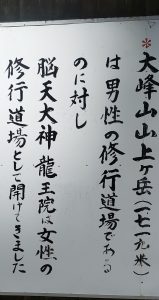 *大峰山山上ヶ岳(一七一九米)
は男性の修行道場である
のに対し
脳天大神龍王院は女性の
修行道場として開けてきました